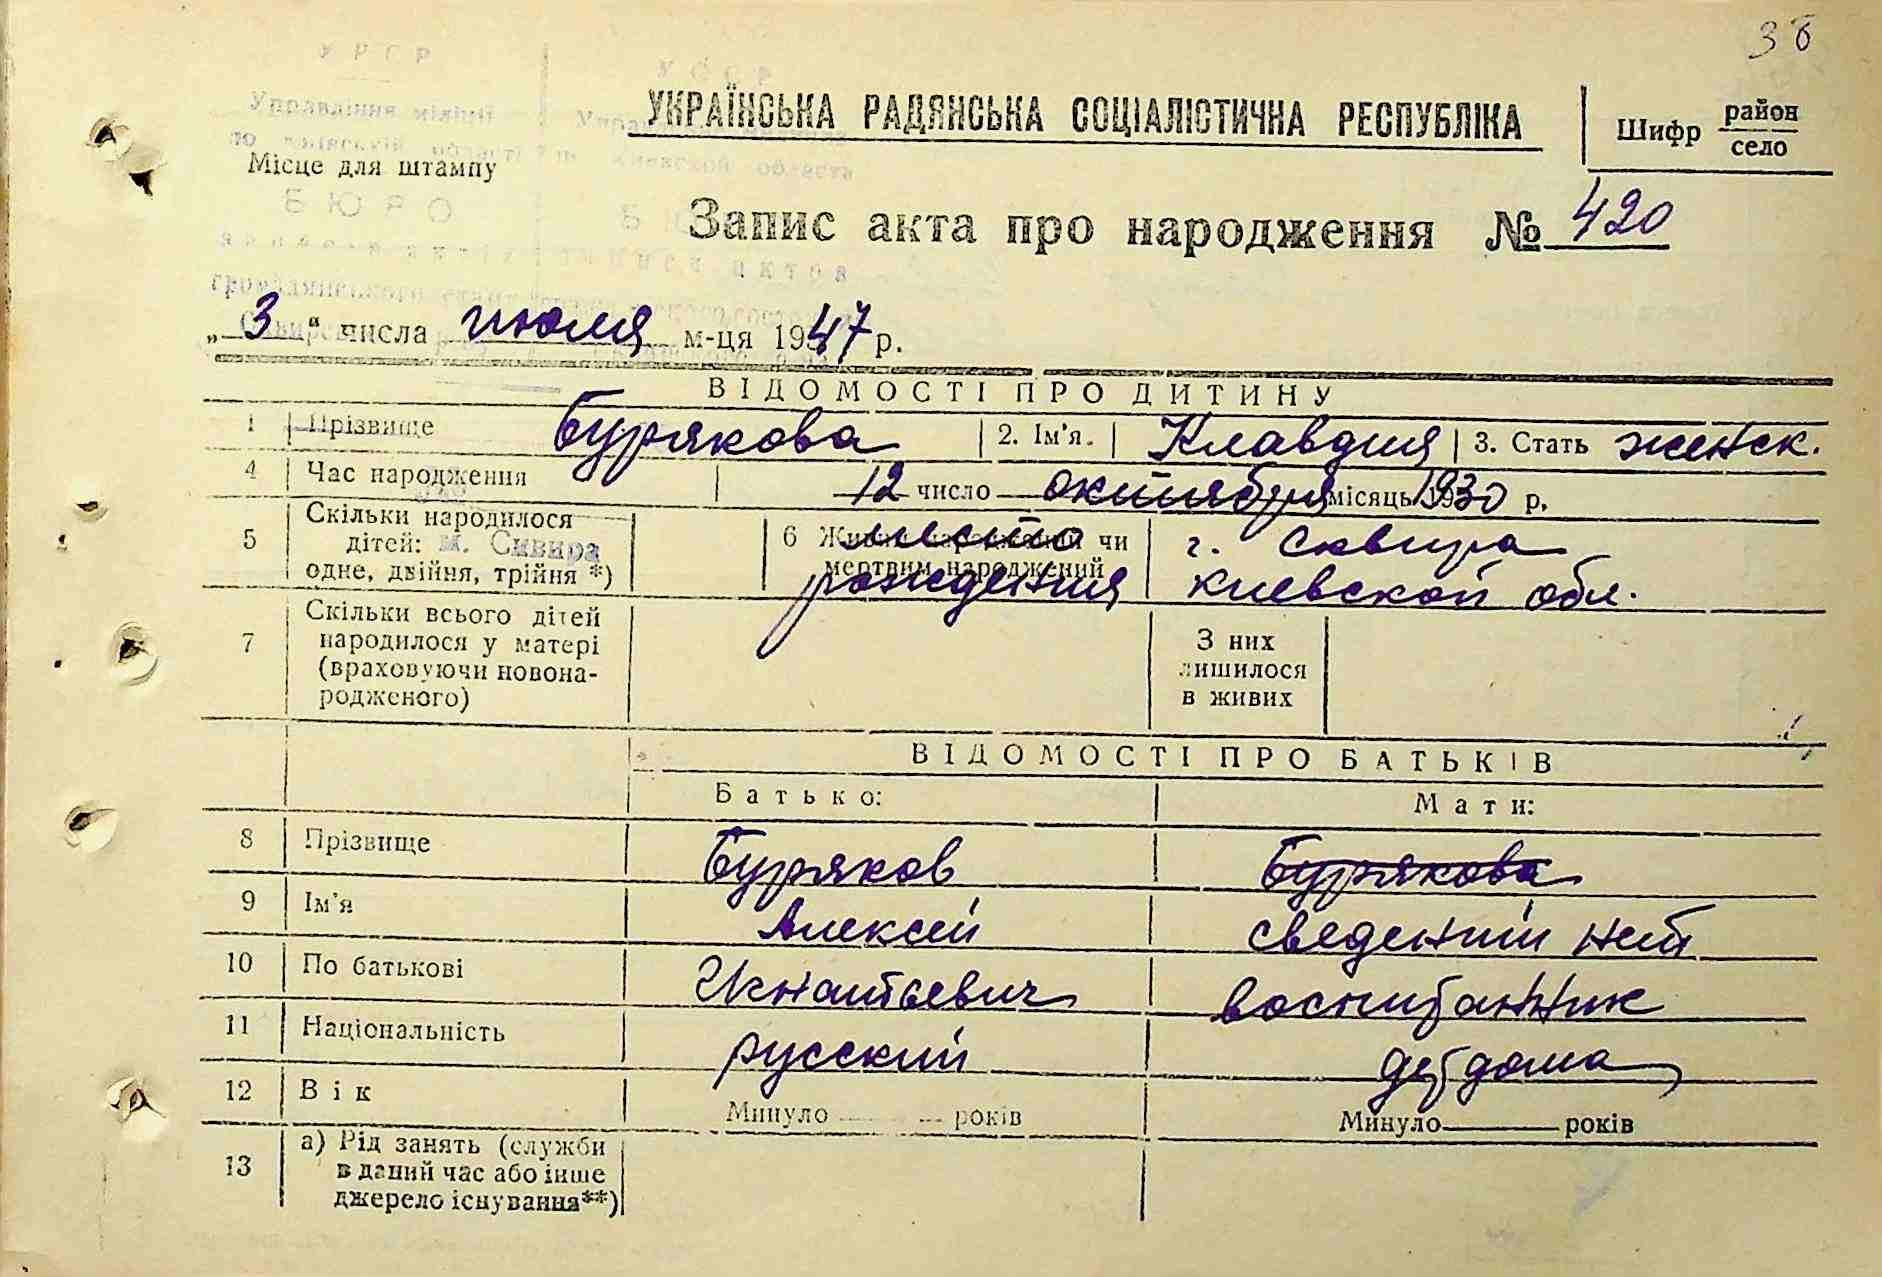 38
УКРАЇНСЬКА РАДЯНСЬКА СОЦІАЛІСТИЧНА РЕСПУБЛІКА
Шифр район
село
УРСР
УССР
Управління міліції
по Київській області
Киевской области
Місце для штампу
БЮРО
Запис акта про народження № 420
„3“ числа июля м-ця 1947 р.
ВІДОМОСТІ ПРО ДИТИНУ
1 Прізвище Бурякова 2. Ім'я. Клавдия 3. Стать женск.
4 Час народження 12 число октября місяць 1930 р.
5 Скільки народилося
дітей: м. Сквира
одне, двійня, трійня *)
6 Живим народжений чи
мертвим народжений
место
рождения
г. Сквира
Киевской обл.
7 Скільки всього дітей
народилося у матері
(враховуючи новона-
родженого)
З них
лишилося
в живих
ВІДОМОСТІ ПРО БАТЬКІВ
Батько: Мати:
8 Прізвище Буряков Бурякова
9 Ім'я Алексей сведений нет
10 По батькові Икнатьевич воспитанник
11 Національність русский детдома
12 Вік Минуло років Минуло років
13 а) Рід занять (служби
в даний час або інше
джерело існування**)